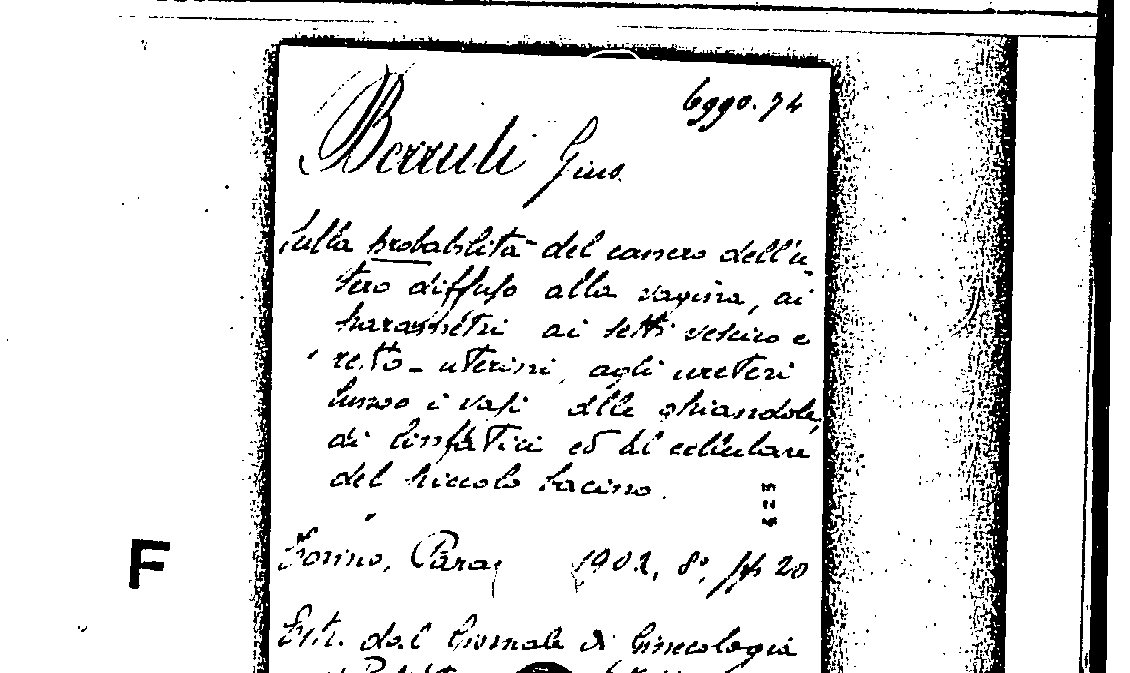 6990.74
Berruti Gius.
Sulla probabilità del cancro dell'u-
tero diffuso alla vagina, ai
parametri ai setti vescico e
retto-uterini, agli ureteri
lungo i vasi alle ghiandole,
di linfatici ed al cellulare
del piccolo bacino.
Torino, Parav 1902, 8°, pp 20
F
Estr. dal Giornale di Ginecologia